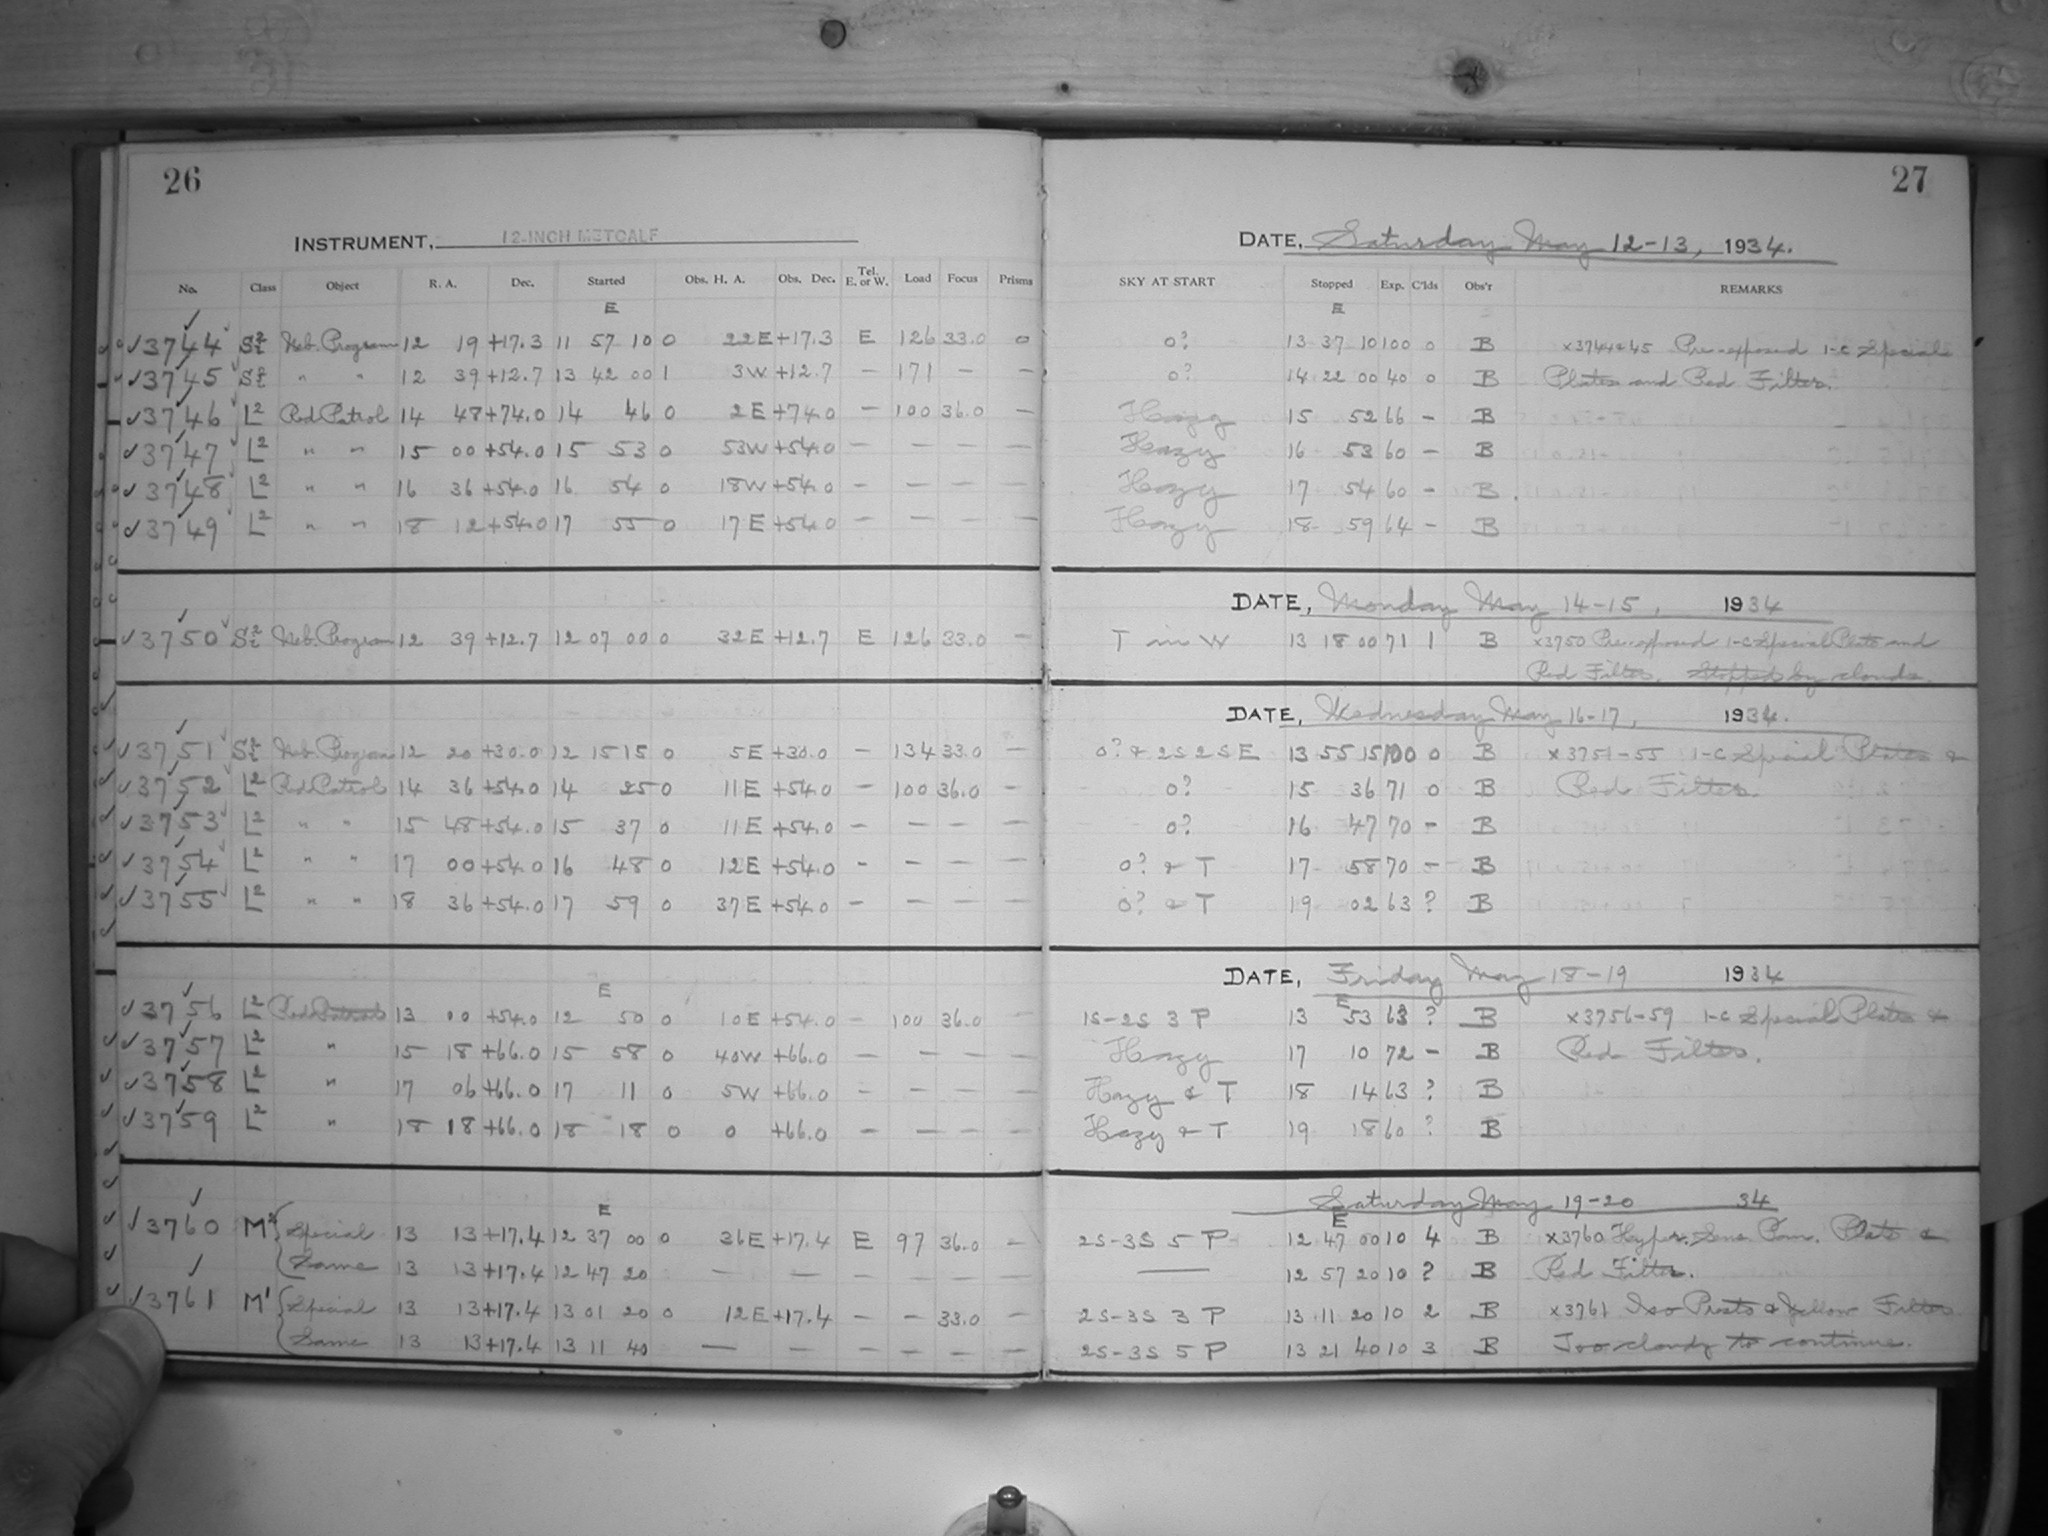 26
INSTRUMENT, 12-INCH METCALF
No. Class Object R. A. Dec. Started Obs. H. A. Obs. Dec. Tel. E. or W. Load Focus Prisms
E
✓3744 Neb. Program 12 19 +17.3 11 57 10 0 22E +17.3 E 126 33.0 0
✓3745 " " 12 39 +12.7 13 42 00 1 3W +12.7 — 171 — —
✓3746 L2 Red Patrol 14 48 +74.0 14 46 0 2E +74.0 — 100 36.0 —
✓3747 L2 " " 15 00 +54.0 15 53 0 53W +54.0 — — — —
✓3748 L2 " " 16 36 +54.0 16 54 0 18W +54.0 — — — —
✓3749 L2 " " 18 12 +54.0 17 55 0 17E +54.0 — — — —
✓3750 Neb. Program 12 39 +12.7 12 07 00 0 32E +12.7 E 126 33.0 —
✓3751 Neb. Program 12 20 +30.0 12 15 15 0 5E +30.0 — 134 33.0 —
✓3752 L2 Red Patrol 14 36 +54.0 14 25 0 11E +54.0 — 100 36.0 —
✓3753 L2 " " 15 48 +54.0 15 37 0 11E +54.0 — — — —
✓3754 L2 " " 17 00 +54.0 16 48 0 12E +54.0 — — — —
✓3755 L2 " " 18 36 +54.0 17 59 0 37E +54.0 — — — —
E
✓3756 L2 Red Patrol 13 00 +54.0 12 50 0 10E +54.0 — 100 36.0 —
✓3757 L2 " 15 18 +66.0 15 58 0 40W +66.0 — — — —
✓3758 L2 " 17 06 +66.0 17 11 0 5W +66.0 — — — —
✓3759 L2 " 18 18 +66.0 18 18 0 0 +66.0 — — — —
E
✓3760 M2 Special 13 13 +17.4 12 37 00 0 36E +17.4 E 97 36.0 —
Same 13 13 +17.4 12 47 20 — — — — — —
✓3761 M1 Special 13 13 +17.4 13 01 20 0 12E +17.4 — — 33.0 —
Same 13 13 +17.4 13 11 40 — — — — — —
27
DATE, Saturday May 12-13, 1934.
SKY AT START Stopped Exp. C'lds Obs'r REMARKS
E
0? 13 37 10 100 0 B x3744&45 Pre-exposed 1-C Special
0? 14 22 00 40 0 B Plates and Red Filter.
Hazy 15 52 66 — B
Hazy 16 53 60 — B
Hazy 17 54 60 — B
Hazy 18 59 64 — B
DATE, Monday May 14-15, 1934
T in W 13 18 00 71 1 B x3750 Pre-exposed 1-C Special Plate and
Red Filter. Stopped by clouds.
DATE, Wednesday May 16-17, 1934.
0? & 2S 2S E 13 55 15 100 0 B x3751-55 1-C Special Plates &
0? 15 36 71 0 B Red Filter.
0? 16 47 70 — B
0? & T 17 58 70 — B
0? & T 19 02 63 ? B
DATE, Friday May 18-19 1934
E
1S-2S 3 P 13 53 63 ? B x3756-59 1-C Special Plates &
Hazy 17 10 72 — B Red Filter.
Hazy & T 18 14 63 ? B
Hazy & T 19 18 60 ? B
Saturday May 19-20 34
E
2S-3S 5 P 12 47 00 10 4 B x3760 Hyper. Sens. Pan. Plate &
— 12 57 20 10 ? B Red Filter.
2S-3S 3 P 13 11 20 10 2 B x3761 Iso Presto & Yellow Filter
2S-3S 5 P 13 21 40 10 3 B Too cloudy to continue.